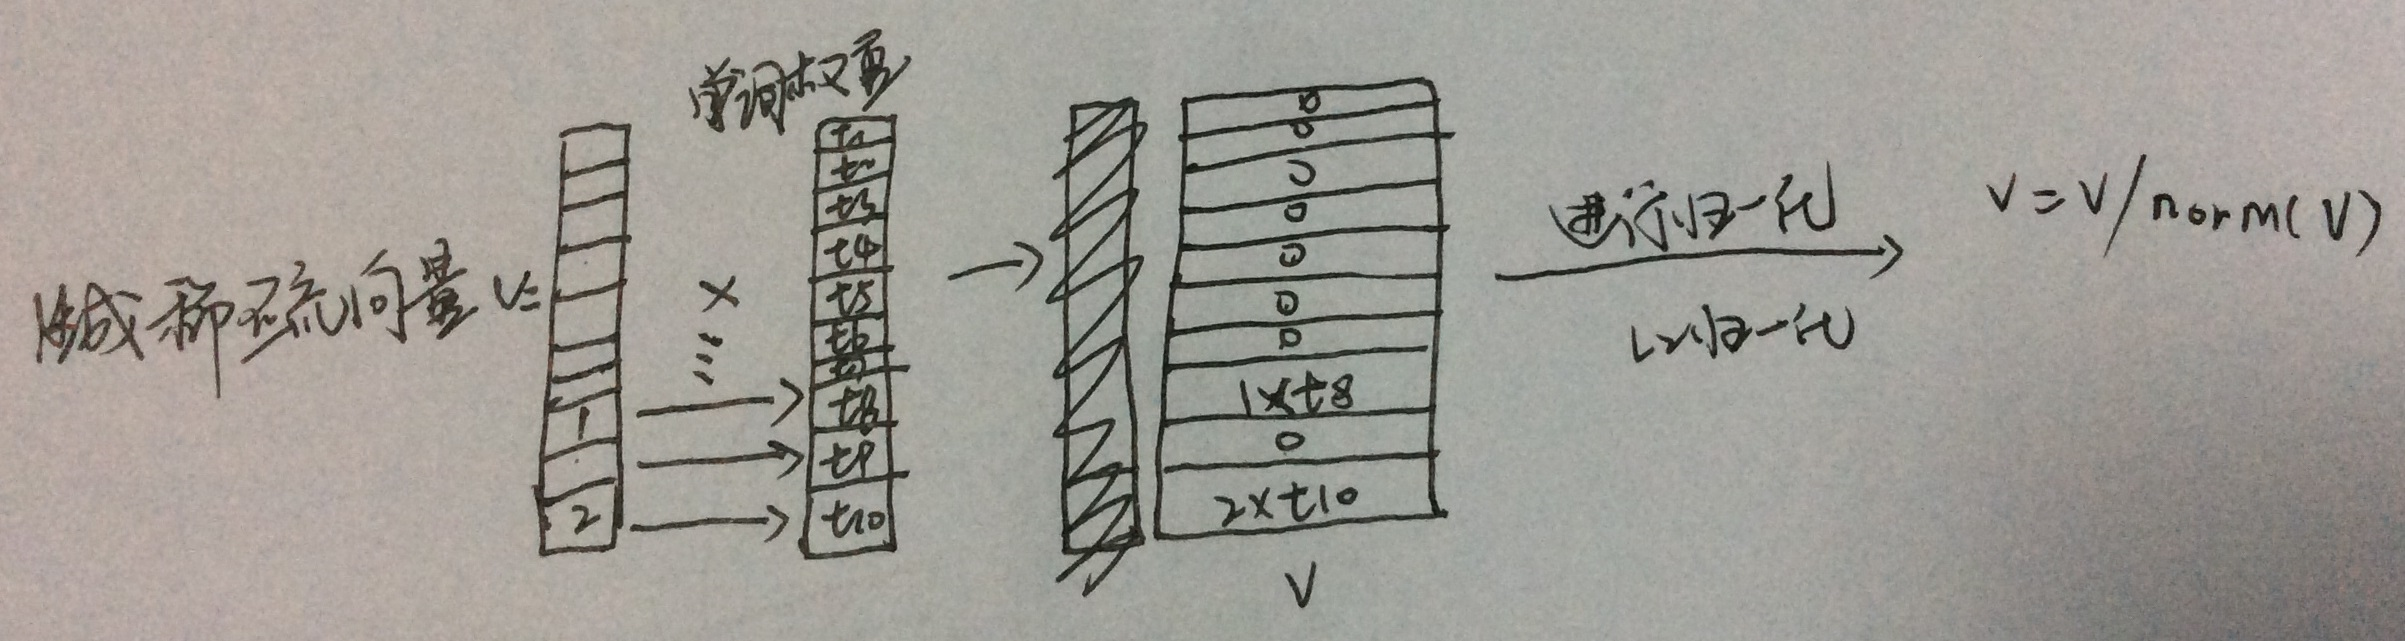 单词权重
生成稀疏向量 V=
1
2
×
t1
t2
t3
t4
t5
t6
t7
t8
t9
t10
0
0
0
0
0
0
0
1×t8
0
2×t10
V
进行归一化
L2归一化
V=V/norm(V)